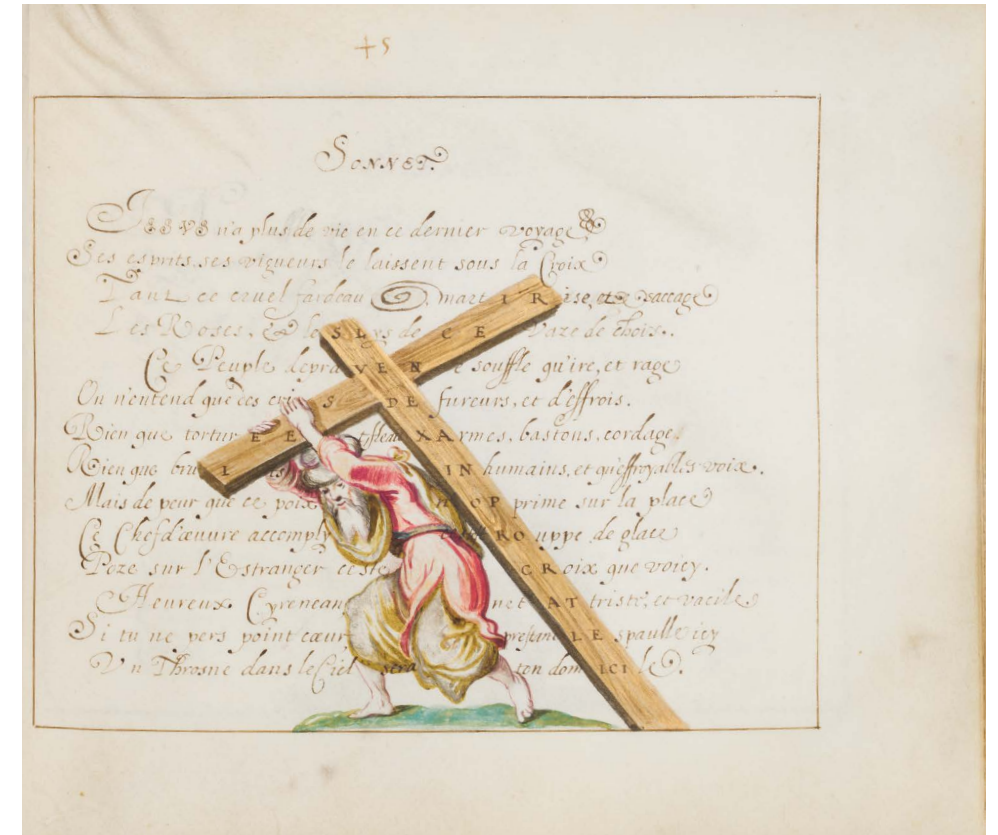 +5
SONNET.
JESVS n'a plus de vie en ce dernier voyage &
Ses esprits, ses vigueurs le laissent sous la Croix
Tant ce cruel fardeau martIRise, et saccage
Les Roses, & les LYs de CE Vaze de choix.
Ce Peuple depraVEN e souffle qu'ire, et rage
On n'entend que des cris DE fureurs, et d'effrois.
Rien que torturEE XArmes, bastons, cordage,
Rien que bruI INhumains, et qu'effroyables voix.
Mais de peur que ce poix OPprime sur la place
Ce Chef d'œuvre accomply ROuppe de glace
Poze sur l'Estranger ceste CRoix que voicy.
Heureux Cyrenean net ATtriste, et vacile
Si tu ne pers point cœur prestant LEspaulle icy
Vn Throsne dans le Ciel sera ton domICIle.